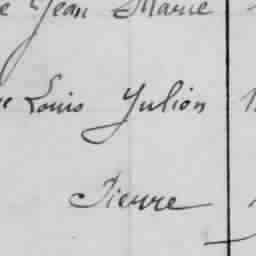 Jean Marie
Louis Julien
Pierre